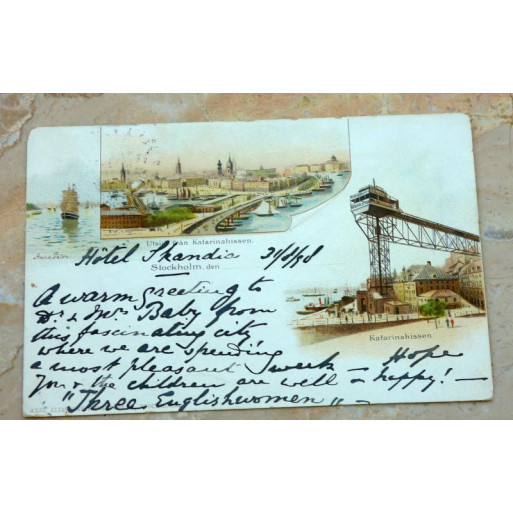 Utsigt från Katarinahissen.
Hôtel Skandia 31/8/98
Stockholm, den
Katarinahissen.
A warm greeting to
Dr. & Mrs. Baby from
this fascinating city
where we are spending
a most pleasant week — Hope
you & the children are well & happy! —
"Three Englishwomen" —